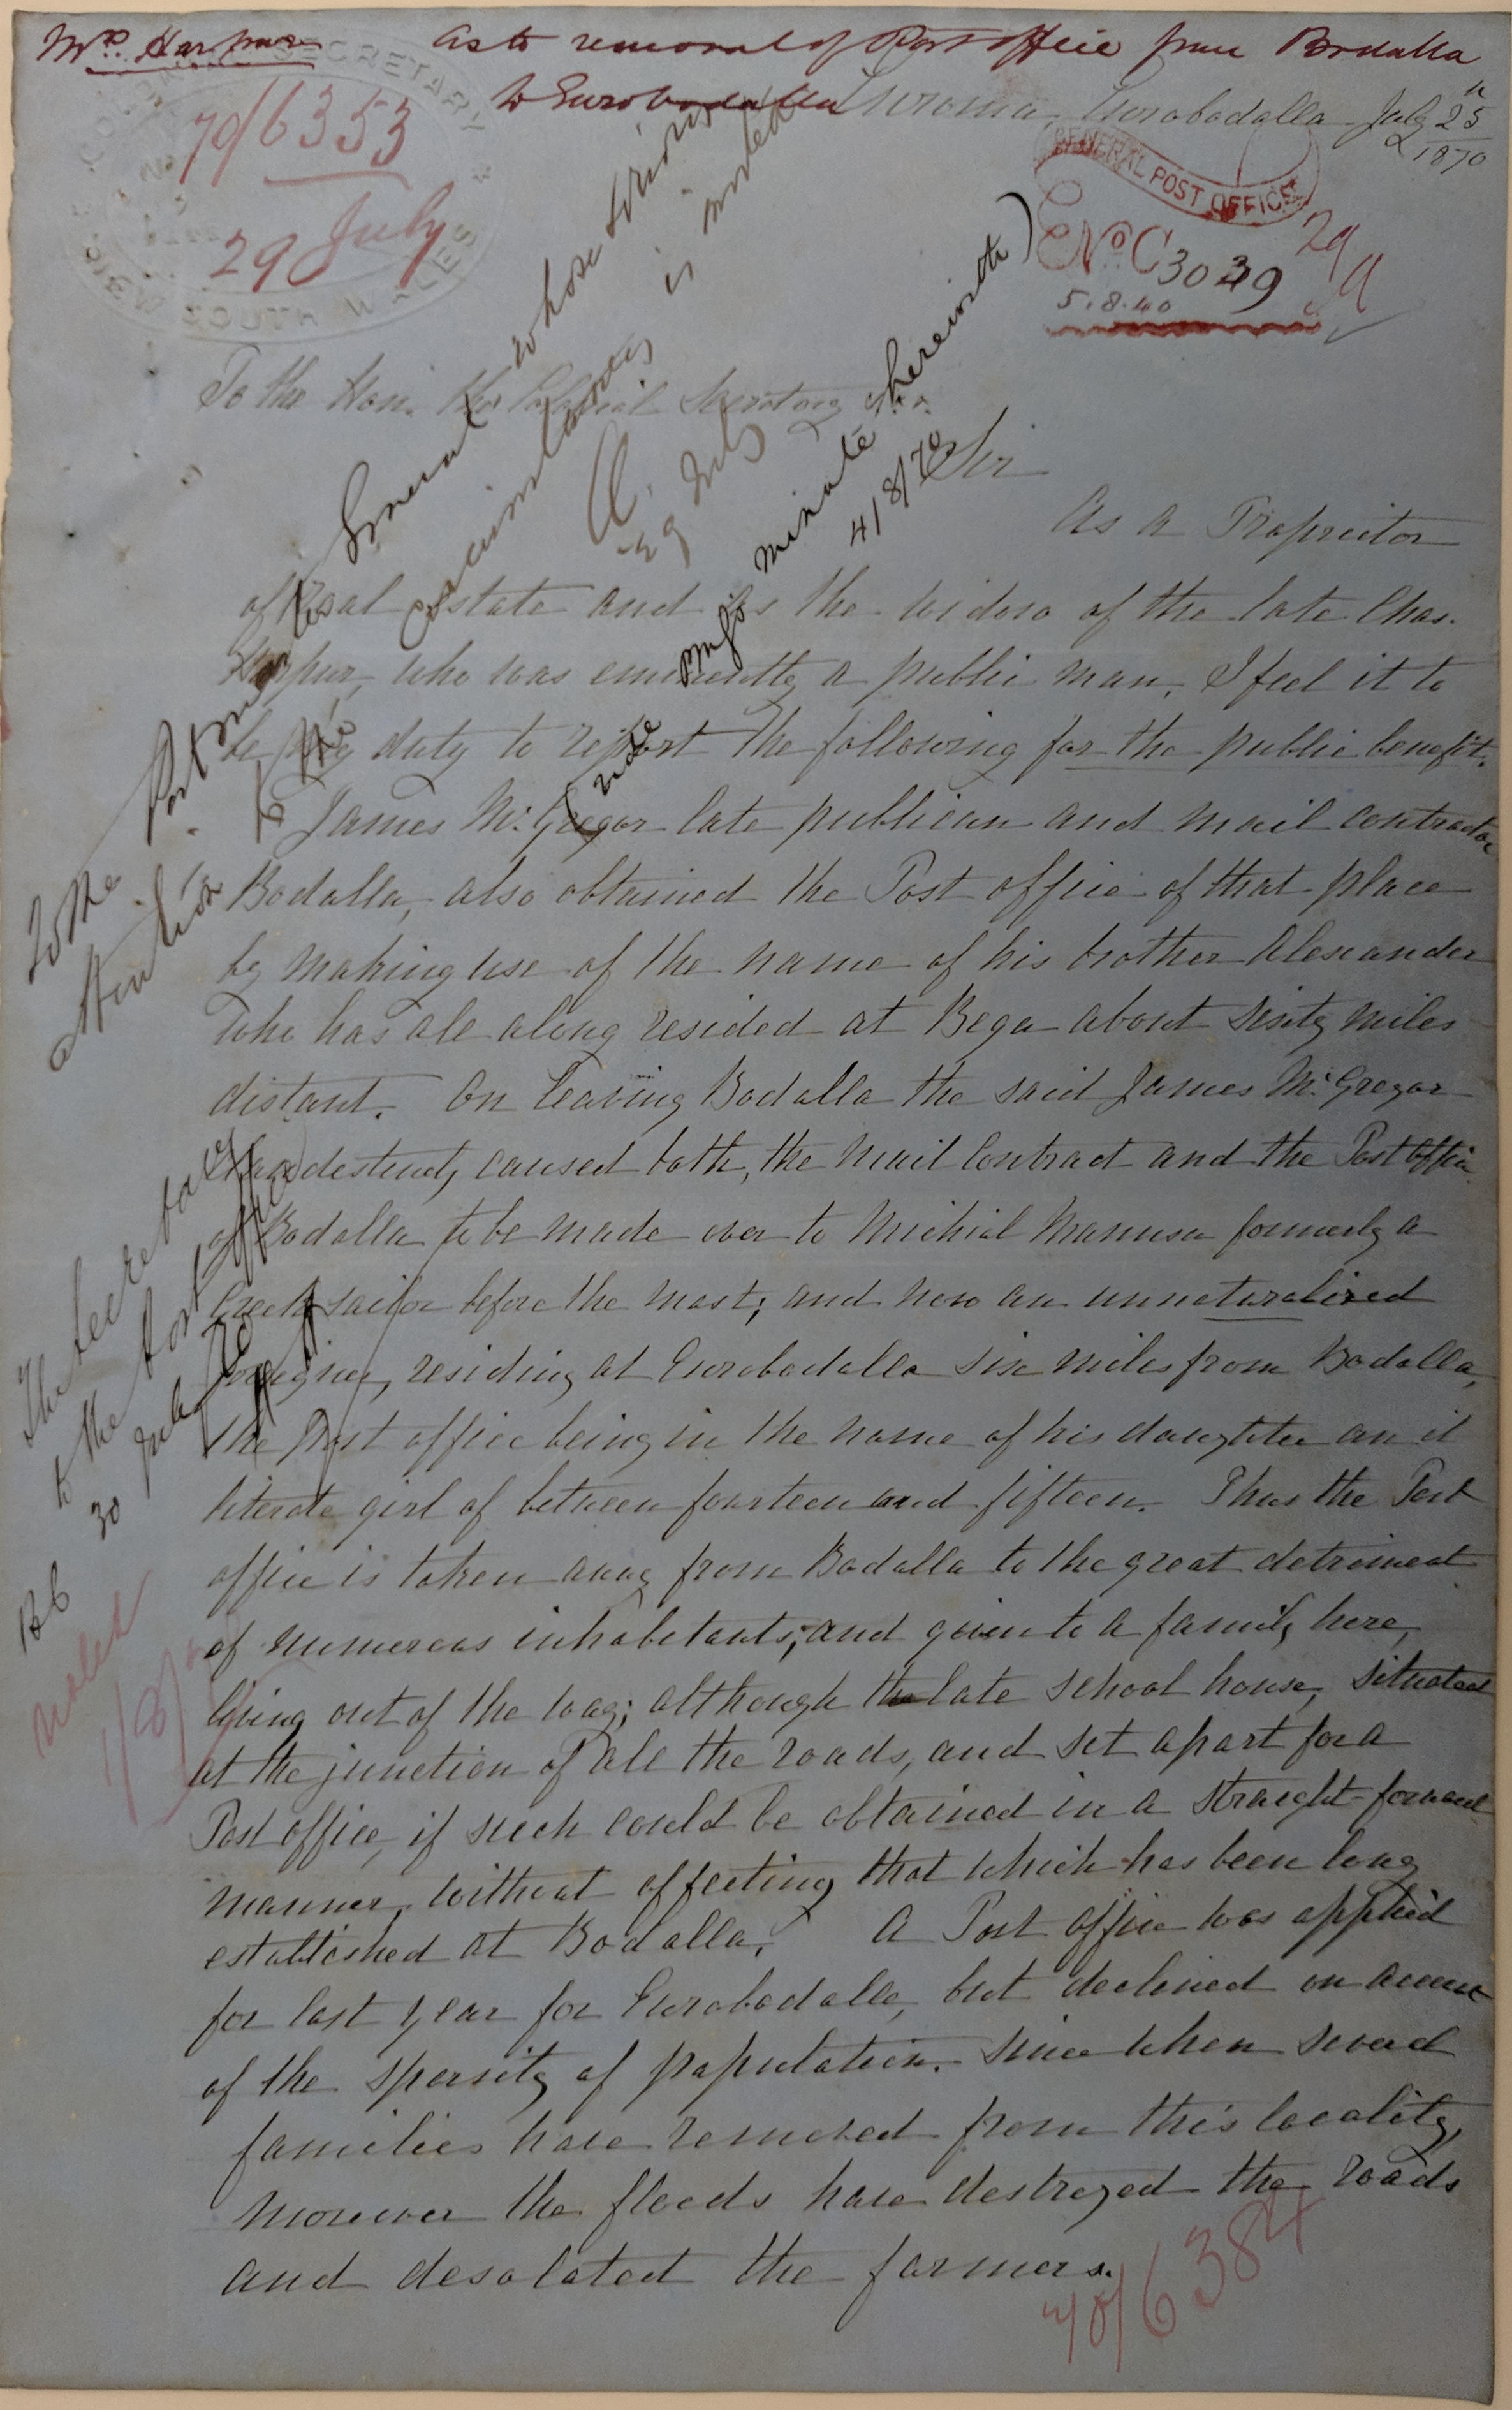 Mrs. Harpur
As to removal of Post office from Bodalla
to Eurobodalla
COLONIAL SECRETARY
NEW SOUTH WALES
70/6353
29 July
Euroma, Eurobodalla July 25th
1870
GENERAL POST OFFICE
No. C 3039
5.8.40
29/9
To the Hon. the Colonial Secretary &c.
Sir
As a Proprietor
of Real estate and as the widow of the late Chas.
Harpur, who was eminently a public man, I feel it to
be my duty to report the following for the public benefit.
James McGregor late publican and mail contractor
Bodalla, also obtained the Post office of that place
by making use of the name of his brother Alexander
who has all along resided at Bega about sixty miles
distant. On leaving Bodalla the said James McGregor
clandestinely caused both, the mail contract and the Post Office
of Bodalla to be made over to Michial Manusu formerly a
Greek sailor before the mast; and now an unnaturalized
foreigner, residing at Eurobodalla six miles from Bodalla,
the Post office being in the name of his daughter an il
literate girl of between fourteen and fifteen. Thus the Post
office is taken away from Bodalla to the great detriment
of numerous inhabitants; and given to a family here,
living out of the way; although the late school house, situated
at the junction of all the roads, and set apart for a
Post office, if such could be obtained in a straight-forward
manner, without affecting that which has been long
established at Bodalla. A Post office was applied
for last year for Eurobodalla, but declined on account
of the sparsity of population. since when several
families have removed from this locality,
moreover the floods have destroyed the roads
and desolated the farmers.
70/6384
To the Postmaster General whose
attention to the circumstances is invited
29 July
(vide minute herewith)
4/8/70
The Secretary
to the Post Office
30 July 70
BC
noted
1/8/70